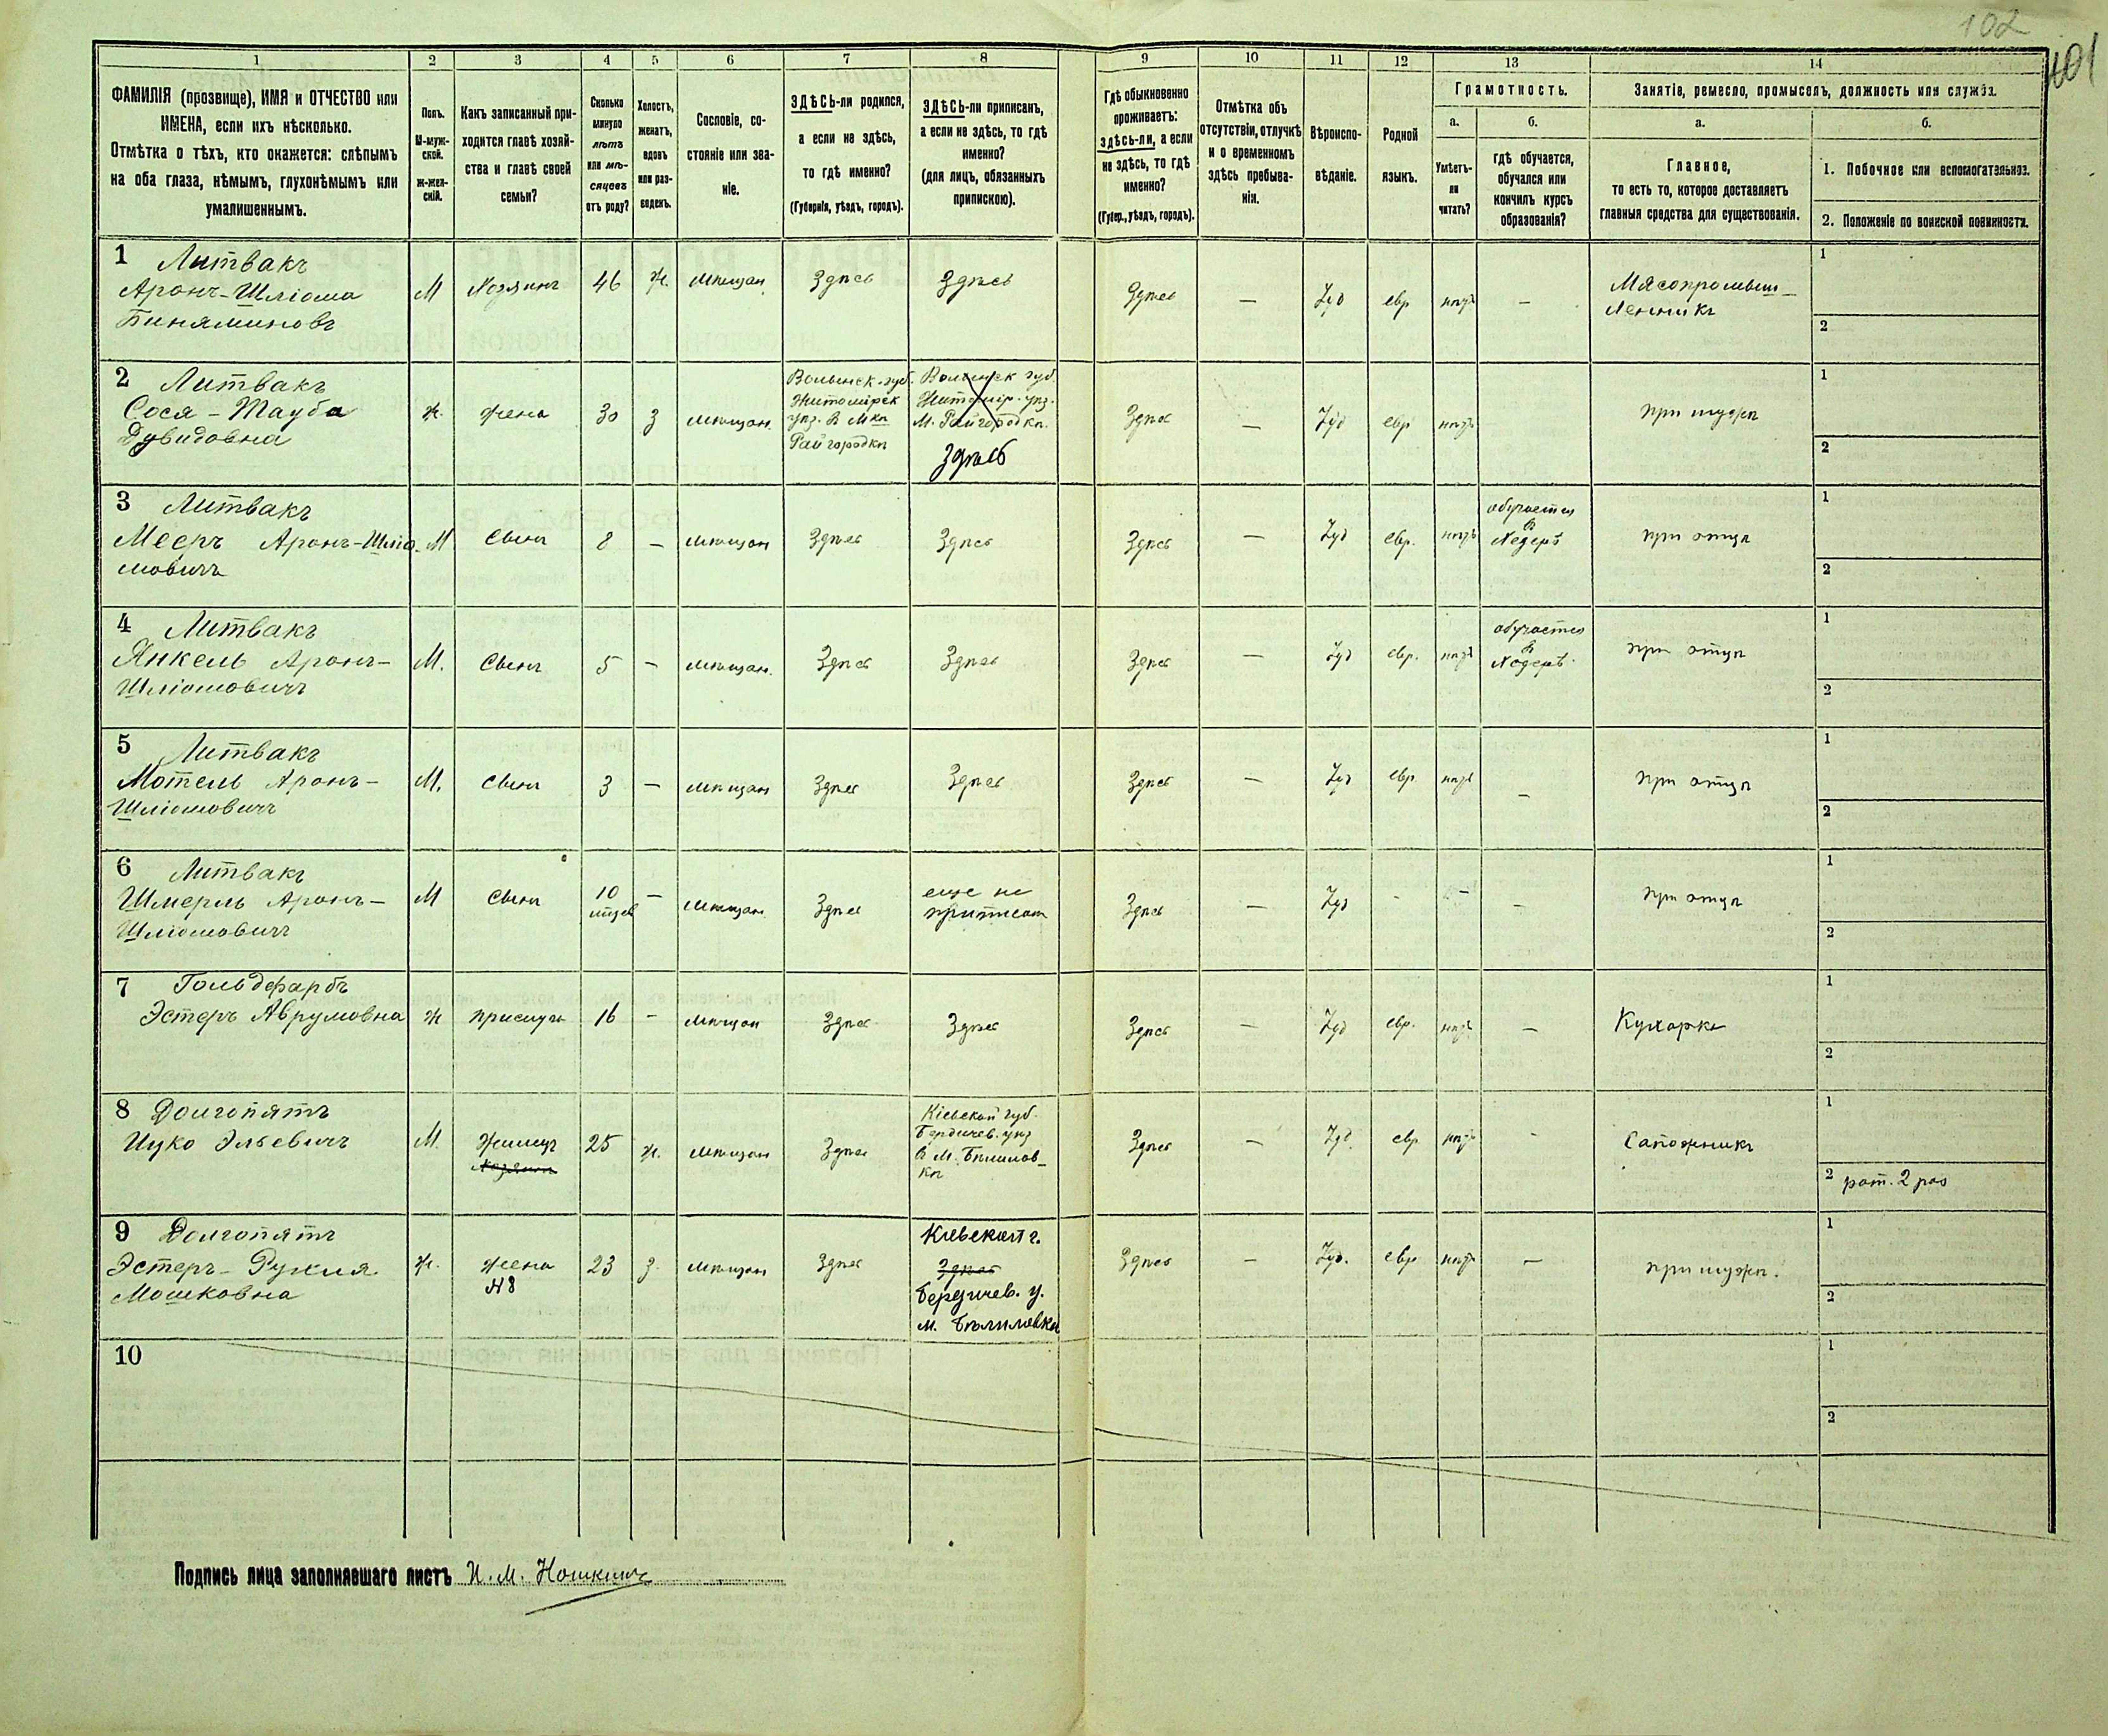 102
101
1
2
3
4
5
6
7
8
9
10
11
12
13
14
ФАМИЛІЯ (прозвище), ИМЯ и ОТЧЕСТВО или
ИМЕНА, если ихъ нѣсколько.
Отмѣтка о тѣхъ, кто окажется: слѣпымъ
на оба глаза, нѣмымъ, глухонѣмымъ или
умалишеннымъ.
Полъ.
М-муж-
ской.
Ж-жен-
скій.
Какъ записанный при-
ходится главѣ хозяй-
ства и главѣ своей
семьи?
Сколько
минуло
лѣтъ
или мѣ-
сяцевъ
отъ роду?
Холостъ,
женатъ,
вдовъ
или раз-
веденъ.
Сословіе, со-
стояніе или зва-
ніе.
ЗДѢСЬ-ли родился,
а если не здѣсь,
то гдѣ именно?
(Губернія, уѣздъ, городъ).
ЗДѢСЬ-ли приписанъ,
а если не здѣсь, то гдѣ
именно?
(для лицъ, обязанныхъ
припискою).
Гдѣ обыкновенно
проживаетъ:
здѣсь-ли, а если
не здѣсь, то гдѣ
именно?
(Губер., уѣздъ, городъ).
Отмѣтка объ
отсутствіи, отлучкѣ
и о временномъ
здѣсь пребыва-
ніи.
Вѣроиспо-
вѣданіе.
Родной
языкъ.
Грамотность.
а.
Умѣетъ-
ли
читать?
б.
гдѣ обучается,
обучался или
кончилъ курсъ
образованія?
Занятіе, ремесло, промыселъ, должность или служба.
а.
Главное,
то есть то, которое доставляетъ
главныя средства для существованія.
б.
1. Побочное или вспомогательное.
2. Положеніе по воинской повинности.
1 Литвакъ
Аронъ-Шліома
Биняминовъ
М
Хозяинъ
46
ж.
мѣщан
Здѣсь
Здѣсь
Здѣсь
—
Іуд
евр
нѣтъ
—
Мясопромыш-
ленникъ
1
2
2 Литвакъ
Сося-Тауба
Дувидовна
ж.
жена
30
з
мѣщан.
Волынск. губ.
Житомірск
уѣз. в Мкѣ
Райгородкѣ
Волынск губ.
Житомір. уѣз.
М. Райгородкѣ.
Здѣсь
Здѣсь
—
Іуд
евр
нѣтъ
при мужѣ
1
2
3 Литвакъ
Мееръ Аронъ-Шліо-
мовичъ
М
Сынъ
8
—
мѣщан
Здѣсь
Здѣсь
Здѣсь
—
Іуд
евр.
нѣтъ
обучается
в
Хедерѣ
при отцѣ
1
2
4 Литвакъ
Янкель Аронъ-
Шліомовичъ
М.
Сынъ
5
—
мѣщан.
Здѣсь
Здѣсь
Здѣсь
—
Іуд
евр.
нѣтъ
обучается
в
Хедерѣ.
при отцѣ
1
2
5 Литвакъ
Мотель Аронъ-
Шліомовичъ
М.
Сынъ
3
—
мѣщан
Здѣсь
Здѣсь
Здѣсь
—
Іуд
евр
нѣтъ
—
при отцѣ
1
2
6 Литвакъ
Шмерль Аронъ-
Шліомовичъ
М
Сынъ
10
мѣсяц
—
мѣщан.
Здѣсь
еще не
приписан
Здѣсь
—
Іуд
-
-
—
при отцѣ
1
2
7 Гольдфарбъ
Эстеръ Аврумовна
ж
прислуга
16
—
мѣщан
Здѣсь
Здѣсь
Здѣсь
—
Іуд
евр.
нѣтъ
—
Кухарка
1
2
8 Долгопятъ
Ицко Эльевичъ
М.
Жилецъ
Хозяинъ
25
ж.
мѣщан
Здѣсь
Кіевской губ.
Бердичев. уѣз
в М. Бѣлилов-
кѣ
Здѣсь
—
Іуд.
евр
нѣтъ
-
Сапожникъ
1
2 рат. 2 раз
9 Долгопятъ
Эстеръ-Рухля
Мошковна
ж.
жена
№8
23
з.
мѣщан
Здѣсь
Кіевской г.
Здѣсь
Бердичев. у.
м. Бѣлиловки
Здѣсь
—
Іуд.
евр
нѣтъ
—
при мужѣ.
1
2
10
1
2
Подпись лица заполнявшаго листъ И. М.